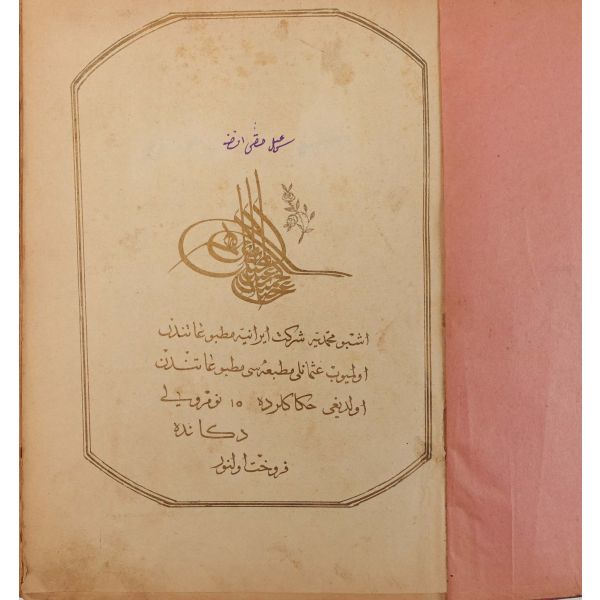 اشبو محمدیه شرکت ایرانیه مطبوعاتندن
اولمیوب عثمانلی مطبعه‌سی مطبوعاتندن
اولدیغی حکاکلرده ١٥ نومرولی
دکانده
فروخت اولنور